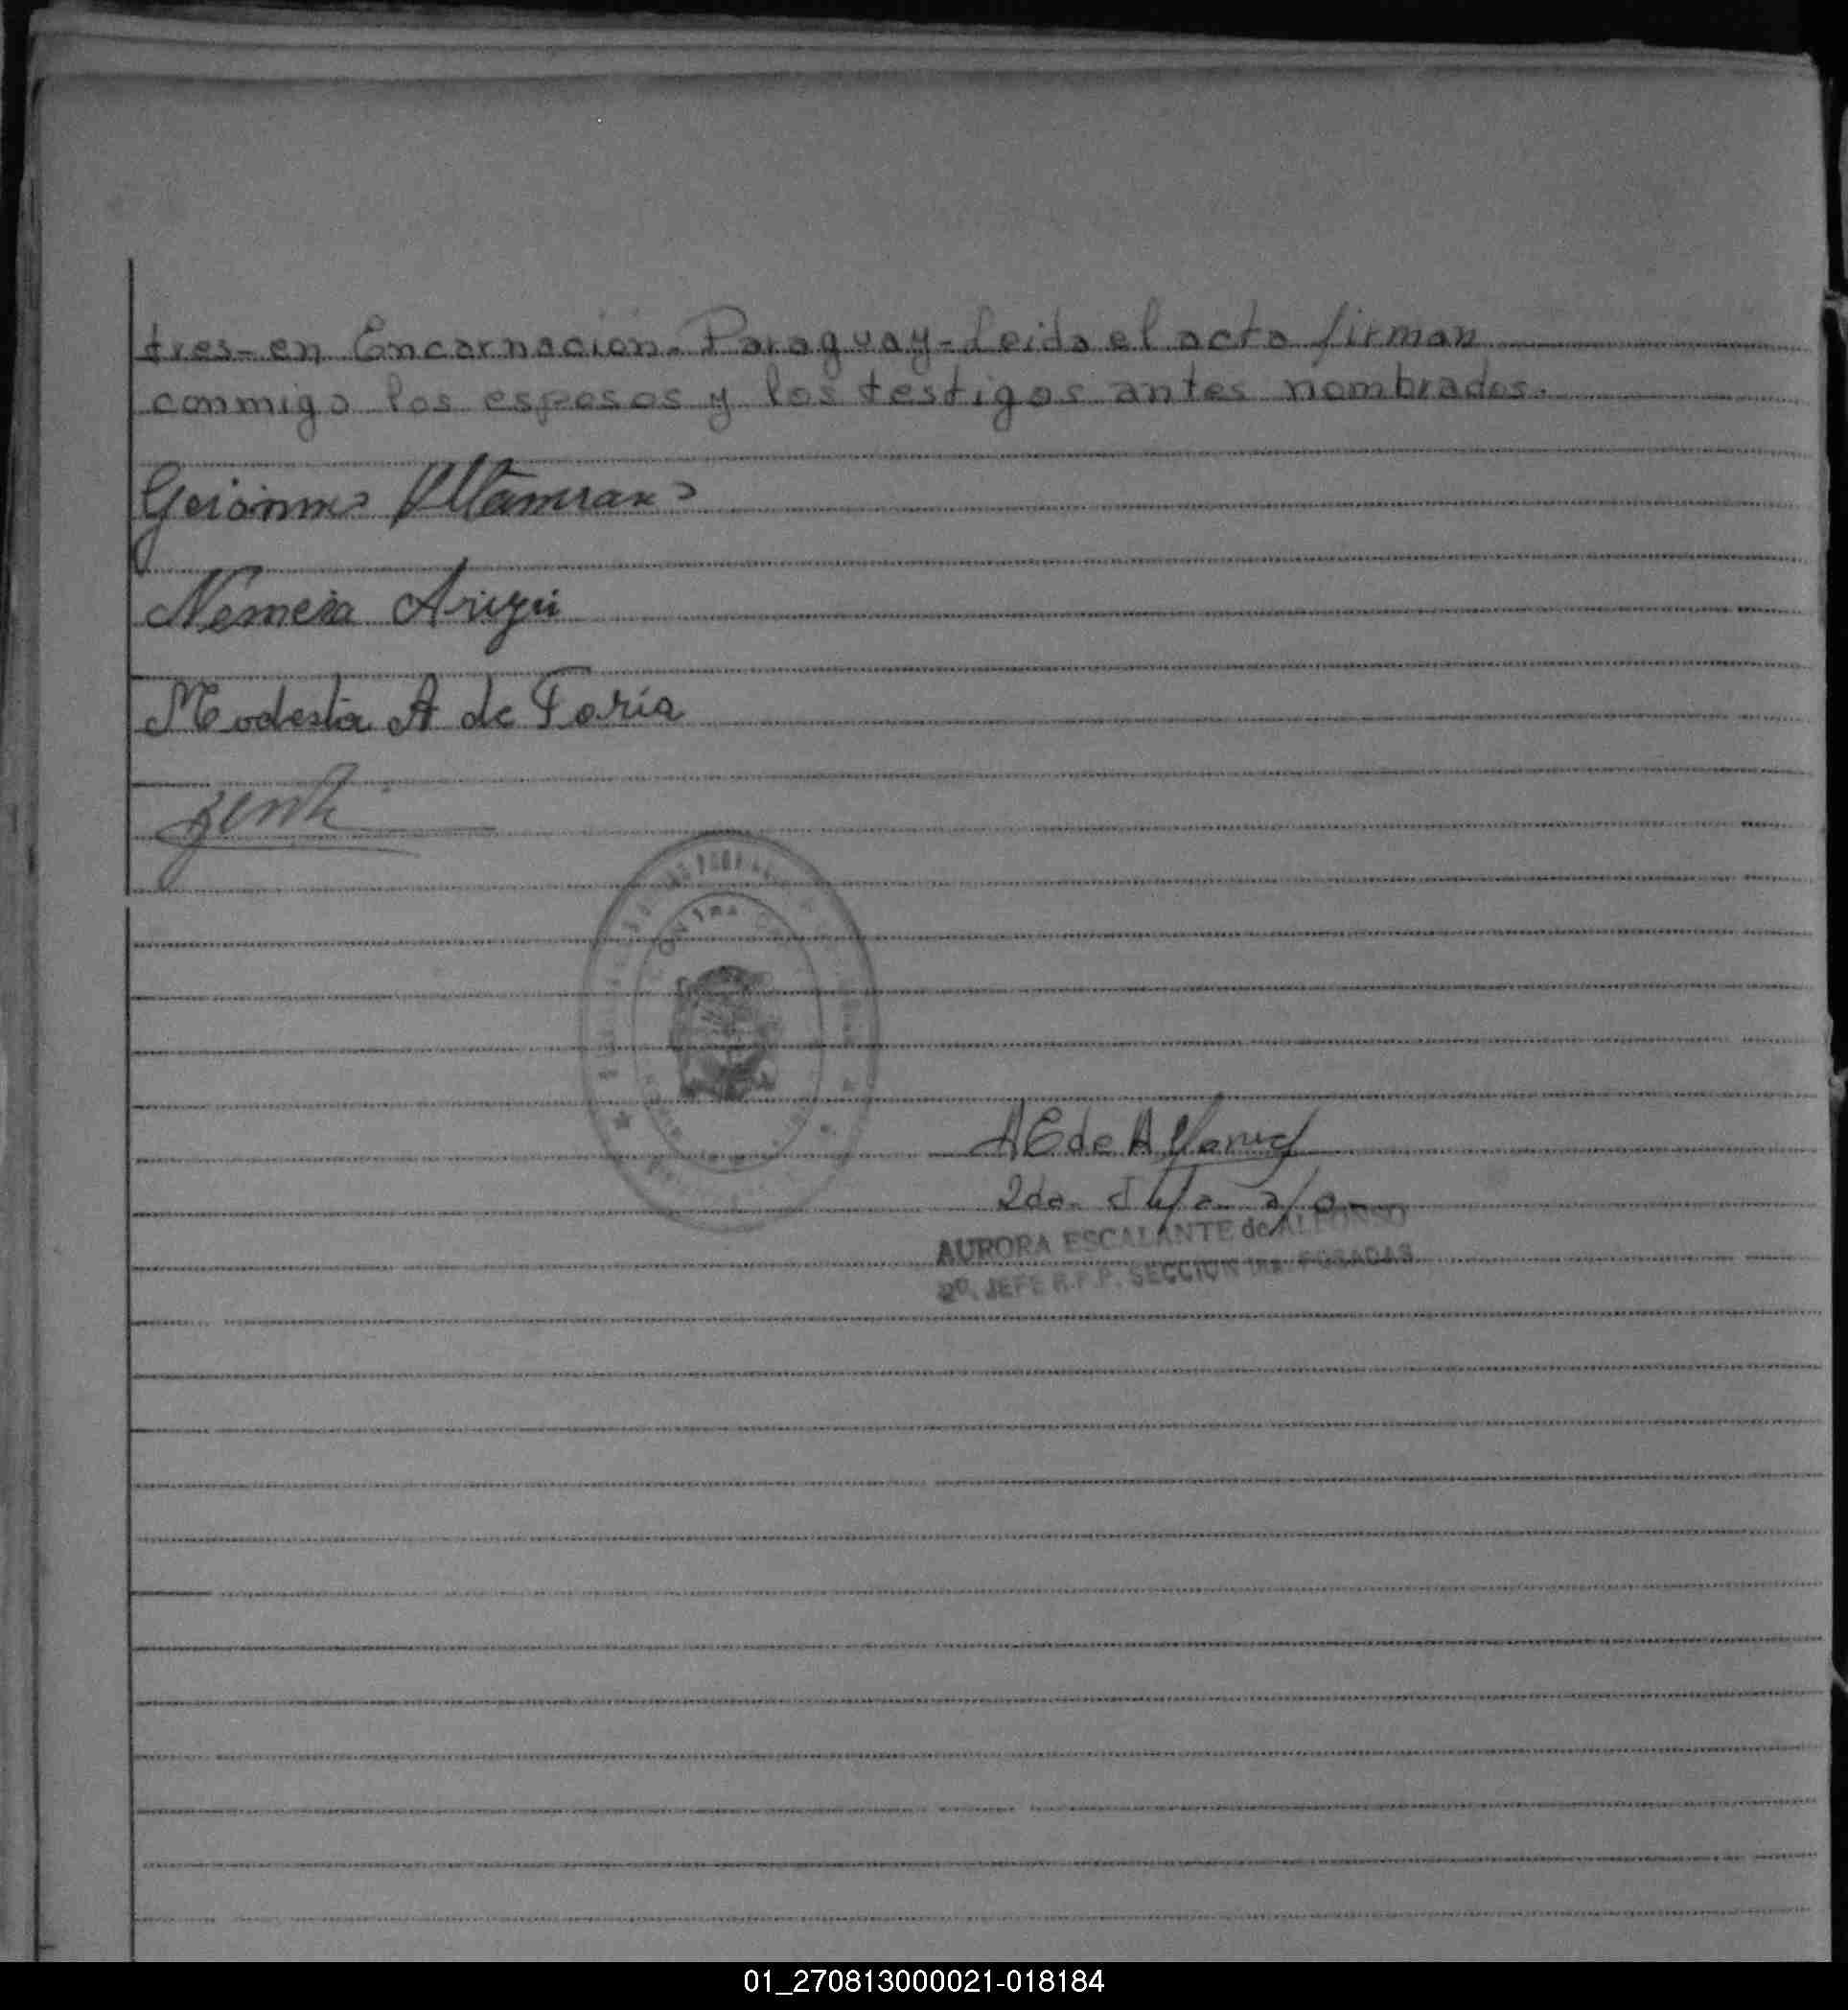 tres- en Encarnación- Paraguay- Leida el acta firman
conmigo los esposos y los testigos antes nombrados.
Gerónimo Altamirano
Nemecia
Modesta A de Faría
AE de Alfonso
2da. Jefa a/c
AURORA ESCALANTE de ALFONSO
2º. JEFE R.P.P. SECCION 1ra. POSADAS
01_270813000021-018184